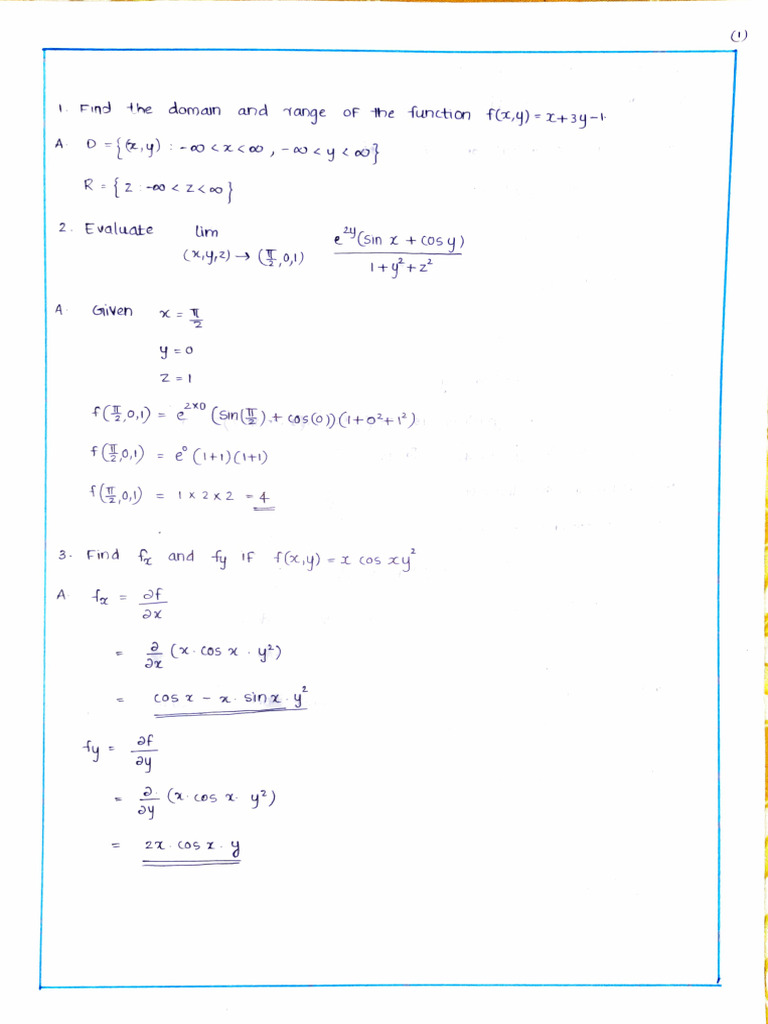 (1)
1. Find the domain and range of the function f(x,y) = x+3y-1.
A. D = {(x,y) : -∞ < x < ∞ , -∞ < y < ∞}
R = {z : -∞ < z < ∞}
2. Evaluate lim (x,y,z) → (π/2,0,1) e^2y(sin x + cos y) / 1 + y² + z²
A. Given x = π/2
y = 0
z = 1
f(π/2,0,1) = e^2×0 (sin(π/2) + cos(0))(1+0²+1²)
f(π/2,0,1) = e° (1+1)(1+1)
f(π/2,0,1) = 1 × 2 × 2 = 4
3. Find fx and fy if f(x,y) = x cos xy²
A. fx = ∂f/∂x
= ∂/∂x (x. cos x . y²)
= cos x - x. sin x. y²
fy = ∂f/∂y
= ∂/∂y (x. cos x. y²)
= 2x. cos x. y